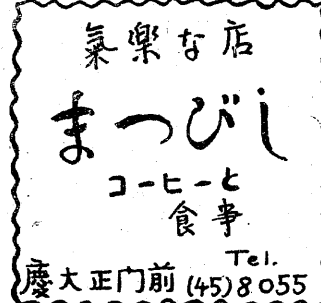 氣楽な店
まつびし
コーヒーと
食事
Tel.
慶大正门前 (45)8055